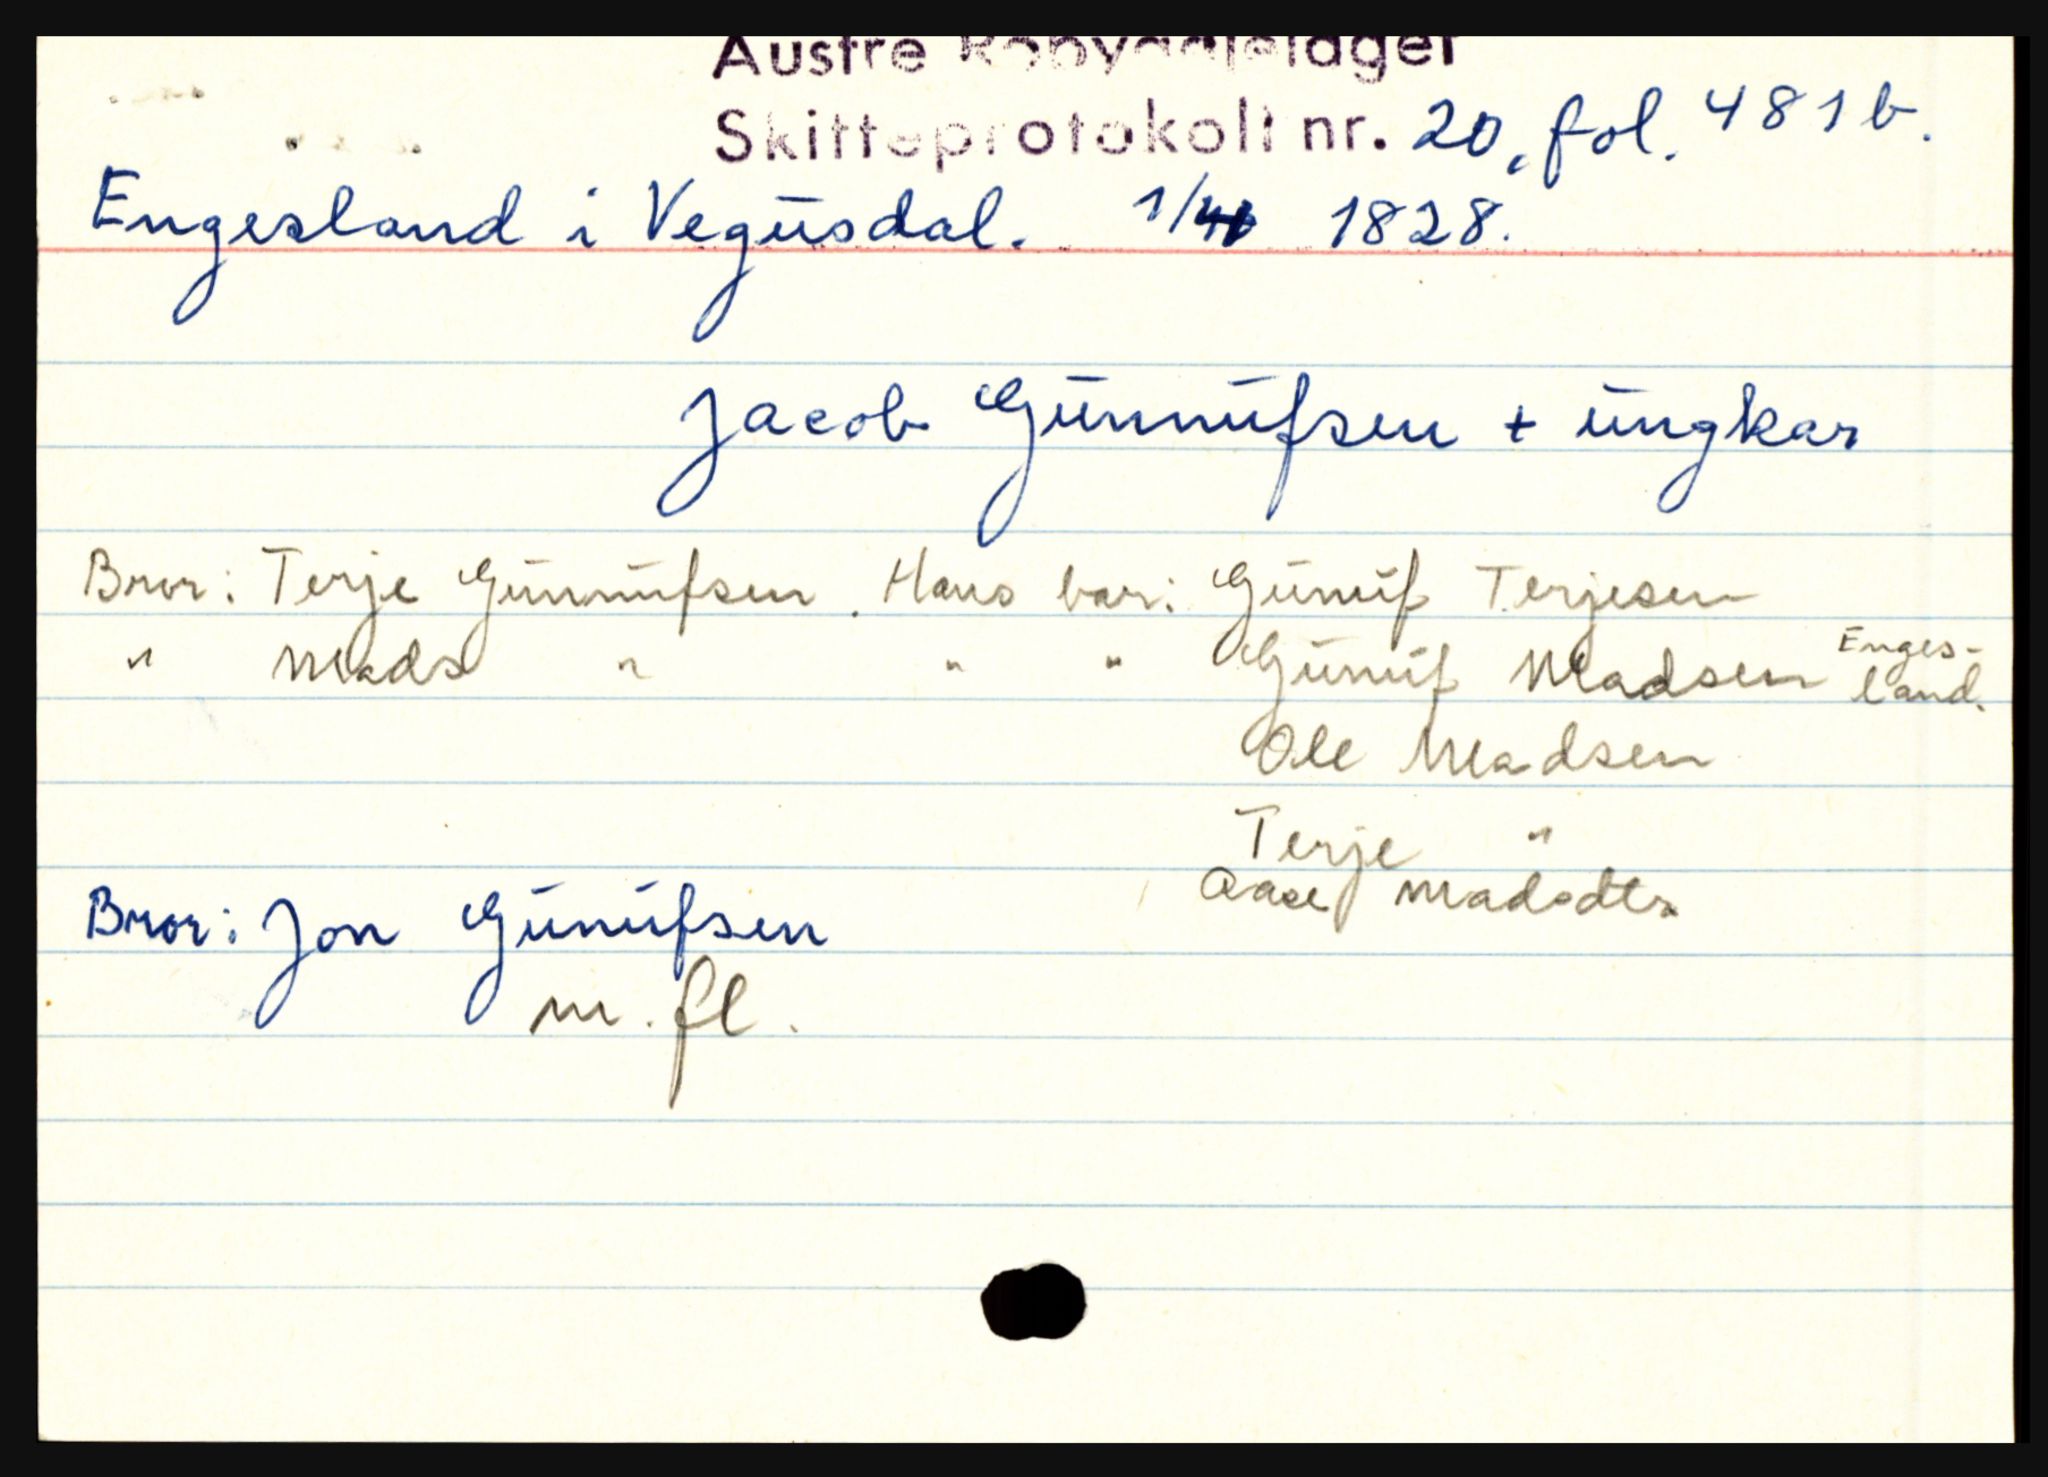 Austre Robyggjelager
Skifteprotokoll nr. 20, fol. 481 b.
Engesland i Vegusdal. 1/4 1828.
Jacob Gunnufsen + ungkar
Bror: Terje Gunnufsen. Hans bar: Gunuf Terjesen
" Mads " " " Gunuf Madsen Engesland.
Ole Madsen
Terje "
Aase Madsdtr.
Bror: Jon Gunufsen
m. fl.